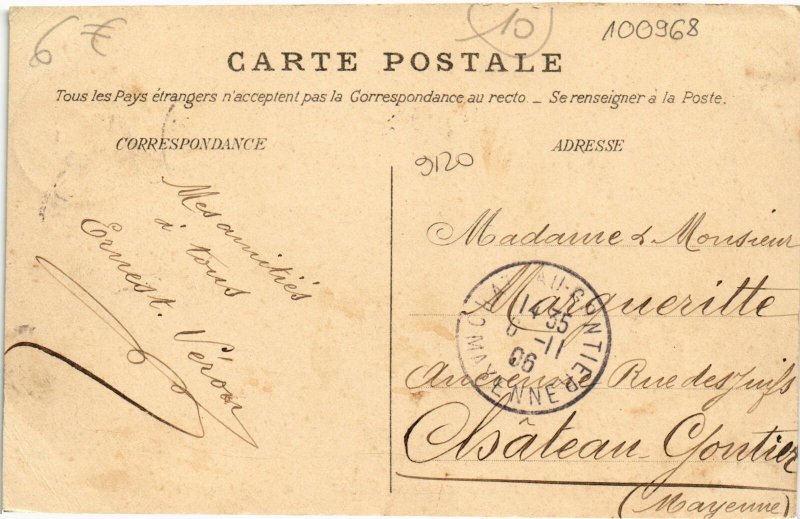 6 €
10
100968
CARTE POSTALE
Tous les Pays étrangers n'acceptent pas la Correspondance au recto _ Se renseigner à la Poste.
CORRESPONDANCE
ADRESSE
9120
Mes amitiés
à tous
Ernest. Véron
Madame & Monsieur
Margueritte
Ancienne Rue des Juifs
Château-Gontier
(Mayenne)
CHATEAU-GONTIER
14 35
-11
06
MAYENNE